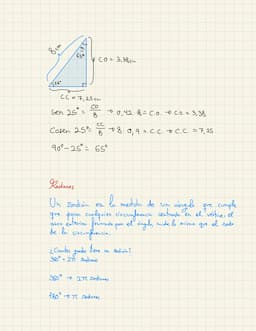 8 cm
65°
CO = 3,38cm
25°
CC = 7,25 cm
Sen 25° = CO/8 → 0,42·8 = CO → CO = 3,38
Cosen 25° = CC/8 → 8·0,9 = CC → CC = 7,25
90° - 25° = 65°
Radianes
Un radián es la medida de un ángulo que cumple
que para cualquier circunferencia centrada en el vértice, el
arco exterior formado por el ángulo, mide lo mismo que el radio
de la circunferencia.
¿Cuántos grados tiene un radián?
360° = 2π radianes
360° → 2π radianes
180° → π radianes